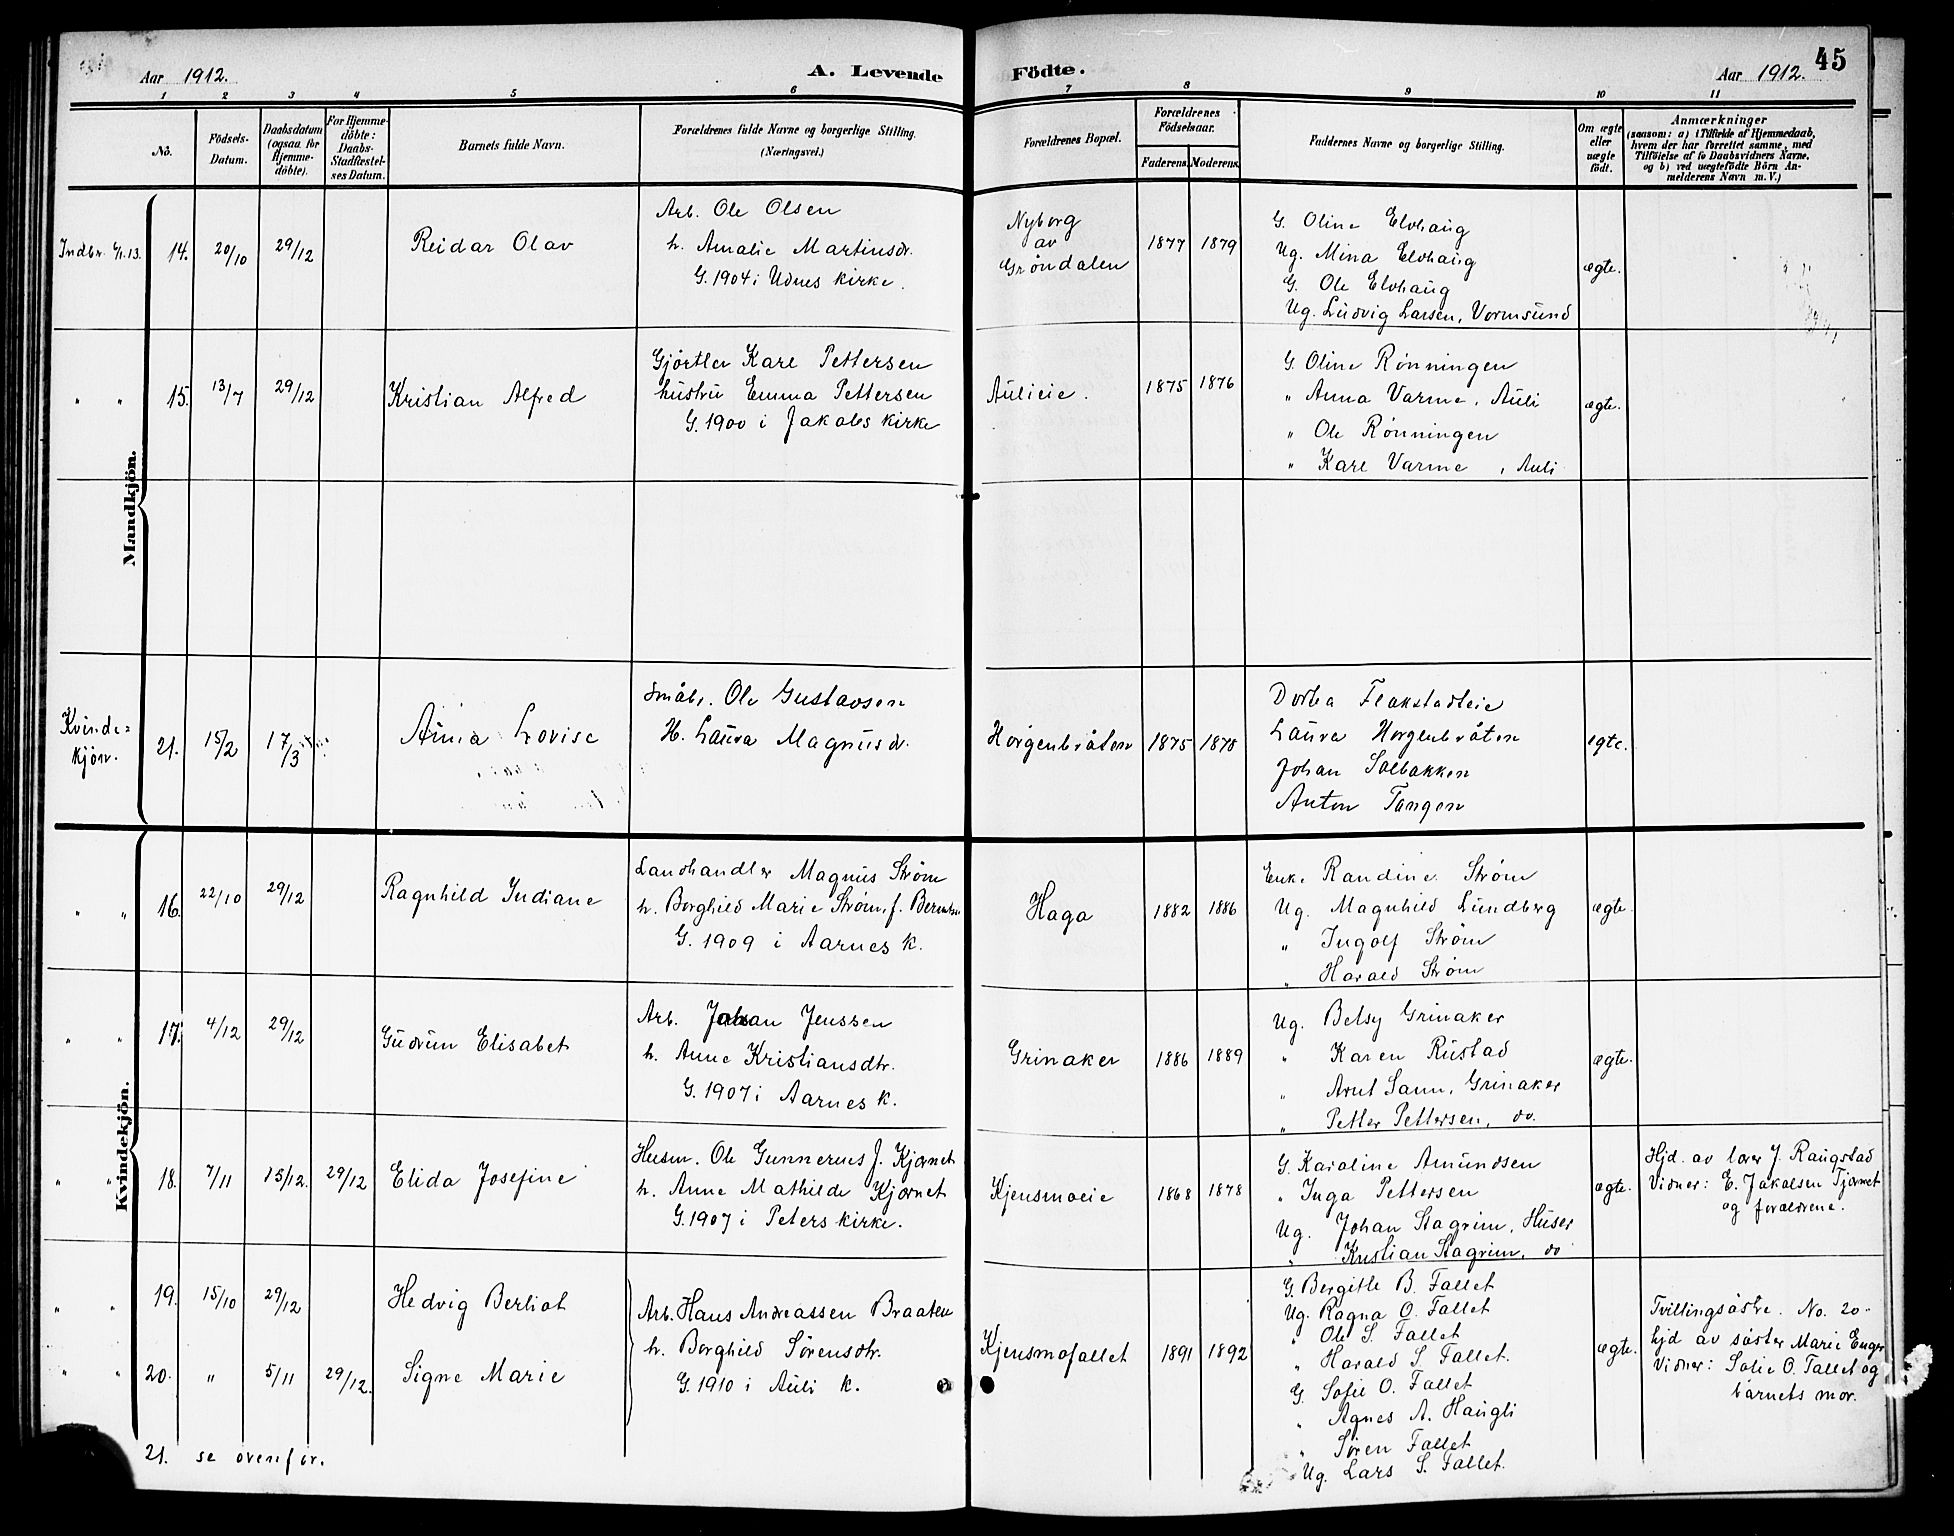 Aar 1912. A. Levende Födte. Aar 1912. 45
1 2 3 4 5 6 7 8 9 10 11
No.
Födsels-Datum.
Daabsdatum (ogsaa for Hjemme-döbte).
For Hjemme-döbte: Daabs-Stadfæstel-ses Datum.
Barnets fulde Navn.
Forældrenes fulde Navne og borgerlige Stilling. (Næringsvei.)
Forældrenes Bopæl.
Forældrenes Födselsaar.
Faderens. Moderens.
Faddernes Navne og borgerlige Stilling.
Om ægte eller uægte födt.
Anmærkninger
(saasom: a) i Tilfælde af Hjemmedaab,
hvem der har forrettet samme, med
Tilföielse af to Daabsvidners Navne,
og b) ved uægtefödte Börn An-
melderens Navn m. V.)
Mandkjön.
Indbr. 4/1. 13. 14. 20/10 29/12 Reidar Olav
Arb. Ole Olsen
h. Amalie Martinsdr.
G. 1904 i Udnes kirke.
Nyborg
av
Grøndalen
1877 1879
G. Oline Elvhaug
Ug. Mina Elvhaug
G. Ole Elvhaug
Ug. Ludvig Larsen, Vormsund
ægte.
" " 15. 13/7 29/12 Kristian Alfred
Gjørtler Karl Pettersen
hustru Emma Pettersen
G. 1900 i Jakobs kirke
Aulieie.
1875 1876
G. Oline Rønningen
" Anna Varme, Auli
" Ole Rønningen
" Karl Varme, Auli
ægte.
Kvinde=
kjøn.
21. 15/2 17/3 Anna Lovise
Småbr. Ole Gustavsen
H. Laura Magnusdr.
Horgenbråten 1875 1878
Dorthea Flakstadteie
Laura Horgenbråten
Johan Solbakken
Anton Tangen
egte.
Kvindekjön.
" " 16. 22/10 29/12 Ragnhild Indiane
Landhandler Magnus Strøm
h. Borghild Marie Strøm, f. Berntsen
G. 1909 i Aarnes k.
Haga 1882 1886
Enke Randine Strøm
Ug. Magnhild Lundberg
" Ingolf Strøm
" Harald Strøm
ægte.
" " 17. 4/12 29/12 Gudrun Elisabet
Arb. Johan Jenssen
h. Anne Kristiansdtr.
G. 1907 i Aarnes k.
Grinaker 1886 1889
Ug. Betsy Grinaker
" Karen Rustad
" Arnt Sann, Grinaker
" Petter Pettersen, do.
ægte.
" " 18. 7/11 15/12. 29/12 Elida Josefine
Husm. Ole Gunnerius J. Kjernet
h. Anne Mathilde Kjernet
G. 1907 i Peters kirke.
Kjensmoeie 1868 1878
G. Karaline Amundsen
" Inga Pettersen
Ug. Johan Stagrim, Huser
" Kristian Stagrim, do
ægte.
Hjd. av lærer J. Raugstad
Vidner: E. Jakobsen Tjærnet
og foreldrene.
" " 19. 15/10 29/12 Hedvig Berliot
" " 20. " 5/11 29/12. Signe Marie
Arb. Hans Andreassen Braaten
h. Borghild Sørensdtr.
G. 1910 i Auli k.
Kjensmofallet 1891 1892
G. Bergitte B. Fallet
Ug. Ragna O. Fallet
" Ole S. Fallet
" Harald S. Fallet.
G. Sofie O. Fallet
" Agnes A. Haugli
" Søren Fallet
Ug. Lars S. Fallet.
ægte.
Tvillingsøstre. No. 20
hjd av søster Marie Enger
Vidner: Sofie O. Fallet og
barnets mor.
21. se ovenfor.